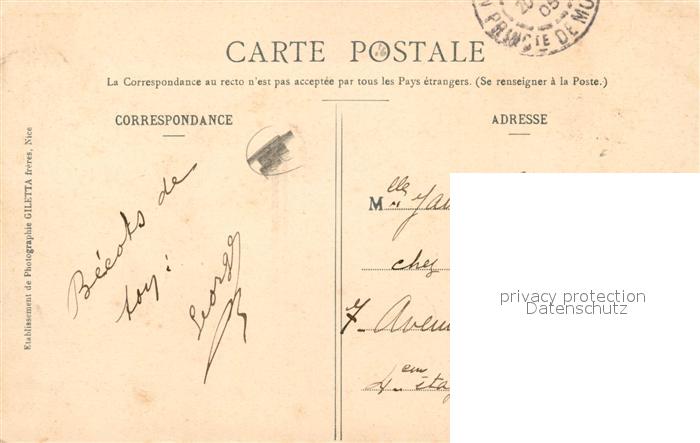 20 05
PRINCᵀᴱ DE MO
CARTE POSTALE
La Correspondance au recto n'est pas acceptée par tous les Pays étrangers. (Se renseigner à la Poste.)
CORRESPONDANCE
Etablissement de Photographie GILETTA frères, Nice
Bécots de
toy:
George
ADRESSE
Mlle
chez
7 Aven
4em étag
privacy protection
Datenschutz